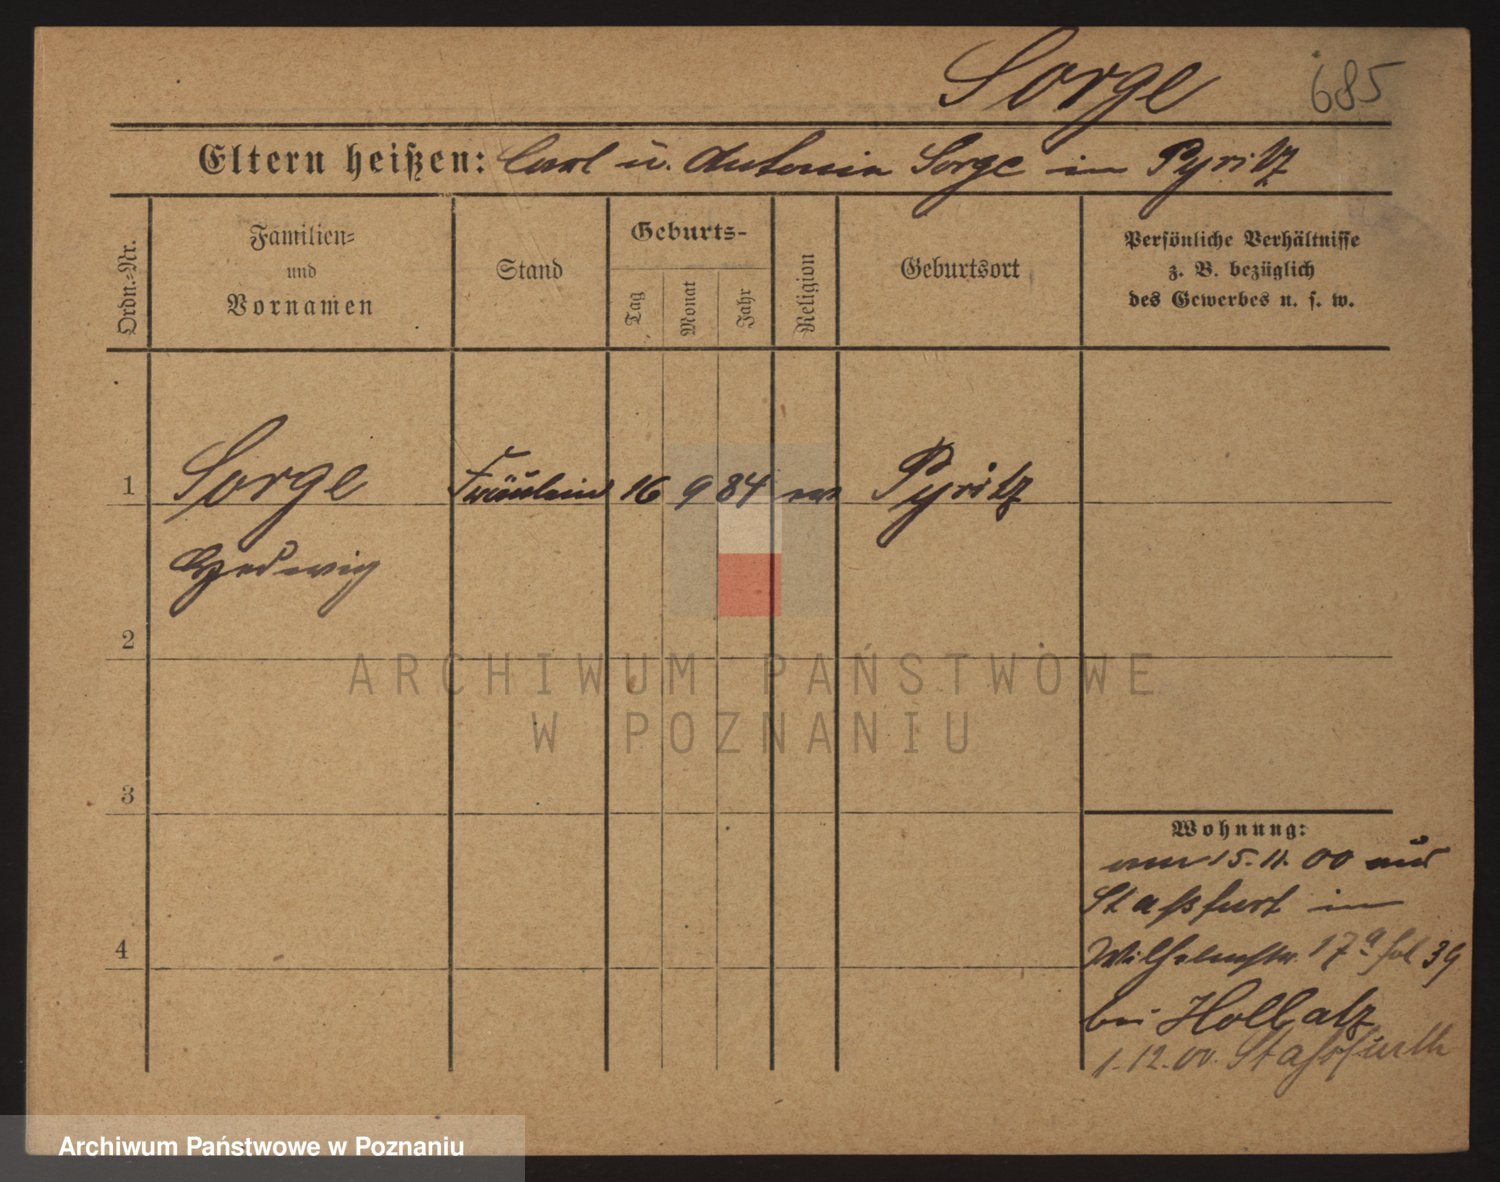 Sorge
685
Eltern heißen: Carl u. Antonie Sorge in Pyritz
Ordn.=Nr.
Familien=
und
Vornamen
Stand
Geburts-
Tag
Monat
Jahr
Religion
Geburtsort
Persönliche Verhältnisse
z. B. bezüglich
des Gewerbes u. s. w.
1 Sorge Fräulein 16 9 84 ev Pyritz
Hedwig
2
3
4
Wohnung:
am 15.11.00 aus
Staßfurt in
Wilhelmstr. 17a 39
bei Hollatz
1.12.00. Staßfurth
ARCHIWUM PAŃSTWOWE
W POZNANIU
Archiwum Państwowe w Poznaniu